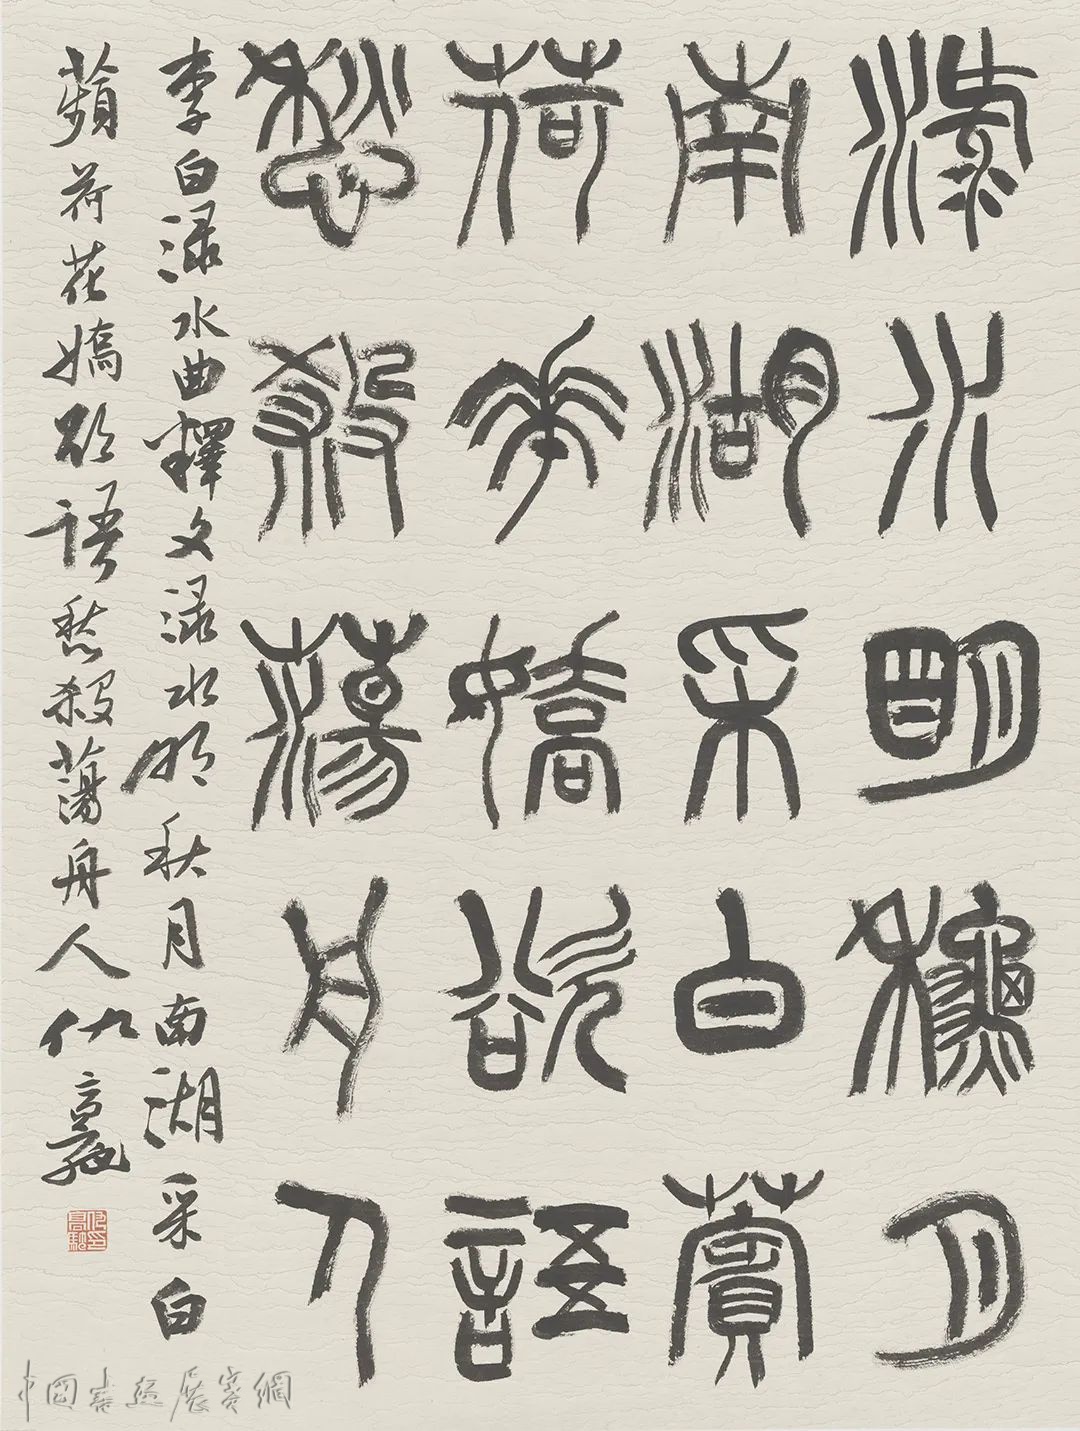 渌水明秋月
南湖采白蘋
荷花嬌欲語
愁殺蕩舟人
李白渌水曲釋文渌水明秋月南湖采白
蘋荷花嬌欲語愁殺蕩舟人仇高
中国书画展赛網